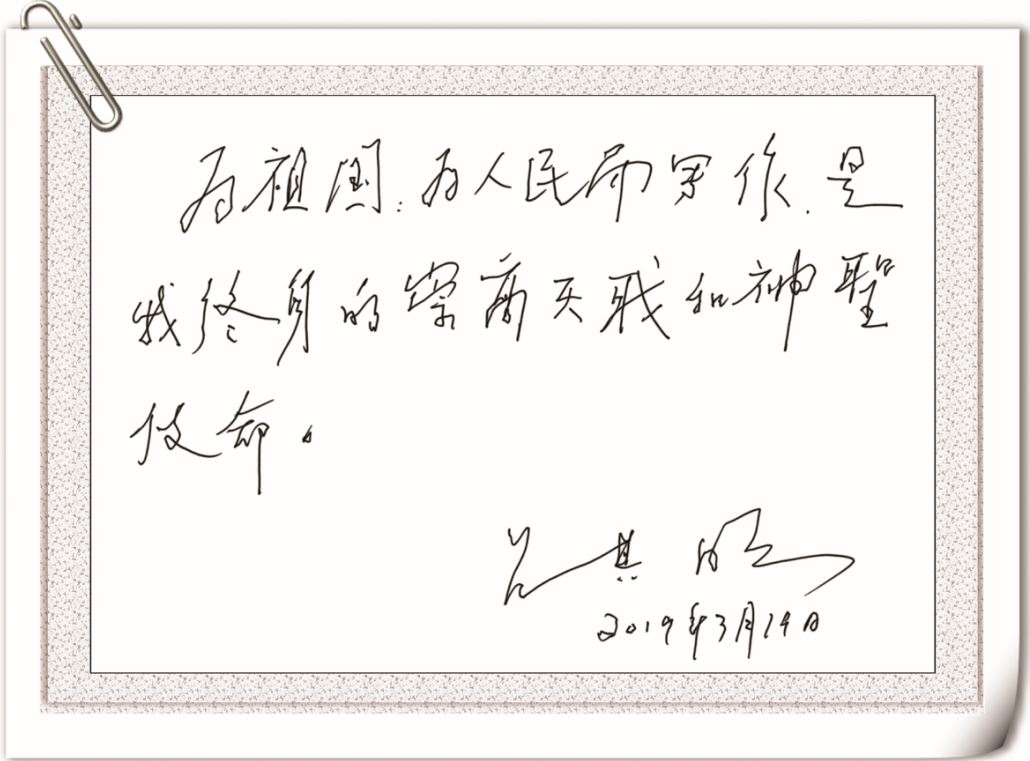 为祖国、为人民而写作,是
我终身的崇高天职和神聖
使命。
吕其明
2019年3月14日